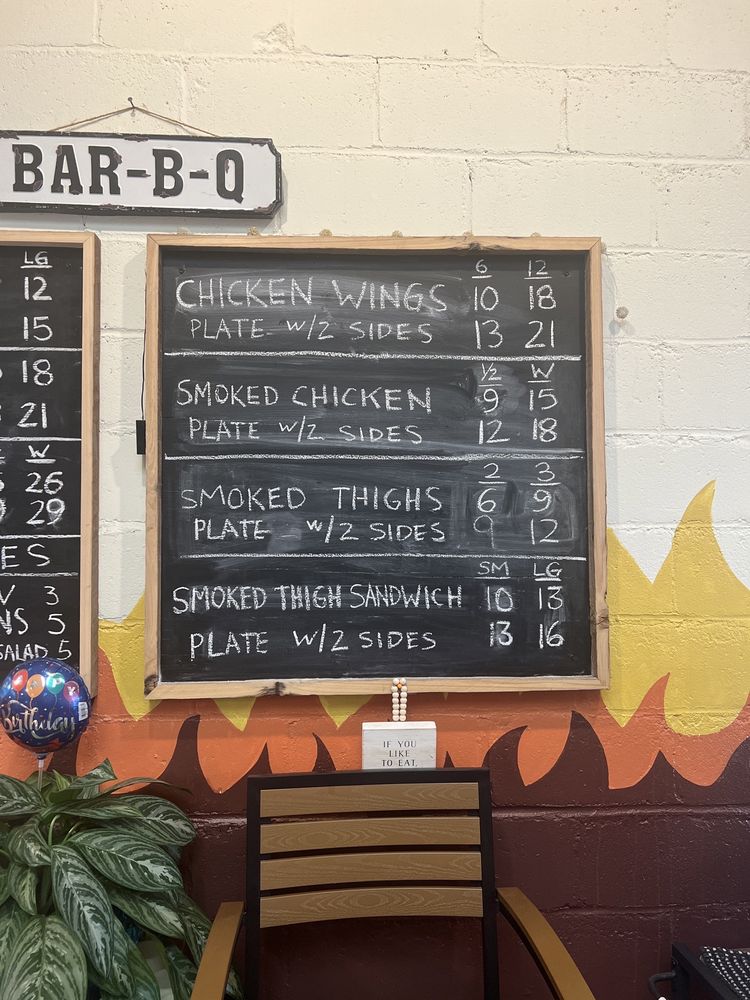 BAR-B-Q
LG
12
15
18
21
W
26
29
ES
3
NS 5
SALAD 5
6 12
CHICKEN WINGS 10 18
PLATE W/2 SIDES 13 21
1/2 W
SMOKED CHICKEN 9 15
PLATE W/2 SIDES 12 18
2 3
SMOKED THIGHS 6 9
PLATE W/2 SIDES 9 12
SM LG
SMOKED THIGH SANDWICH 10 13
PLATE W/2 SIDES 13 16
Birthday
IF YOU
LIKE
TO EAT,